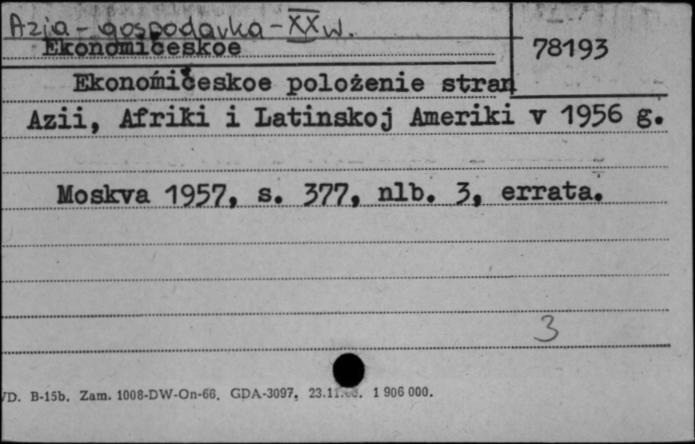 Azja - gospodarka - XX w.
Ekonomičeskoe
78193
Ekonomičeskoe położenie stran
Azii, Afriki i Latinskoj Ameriki v 1956 g.
Moskva 1957, s. 377, nlb. 3, errata.
3
VD. B-15b. Zam. 1008-DW-On-66. GDA-3097, 23.11. 1 906 000.